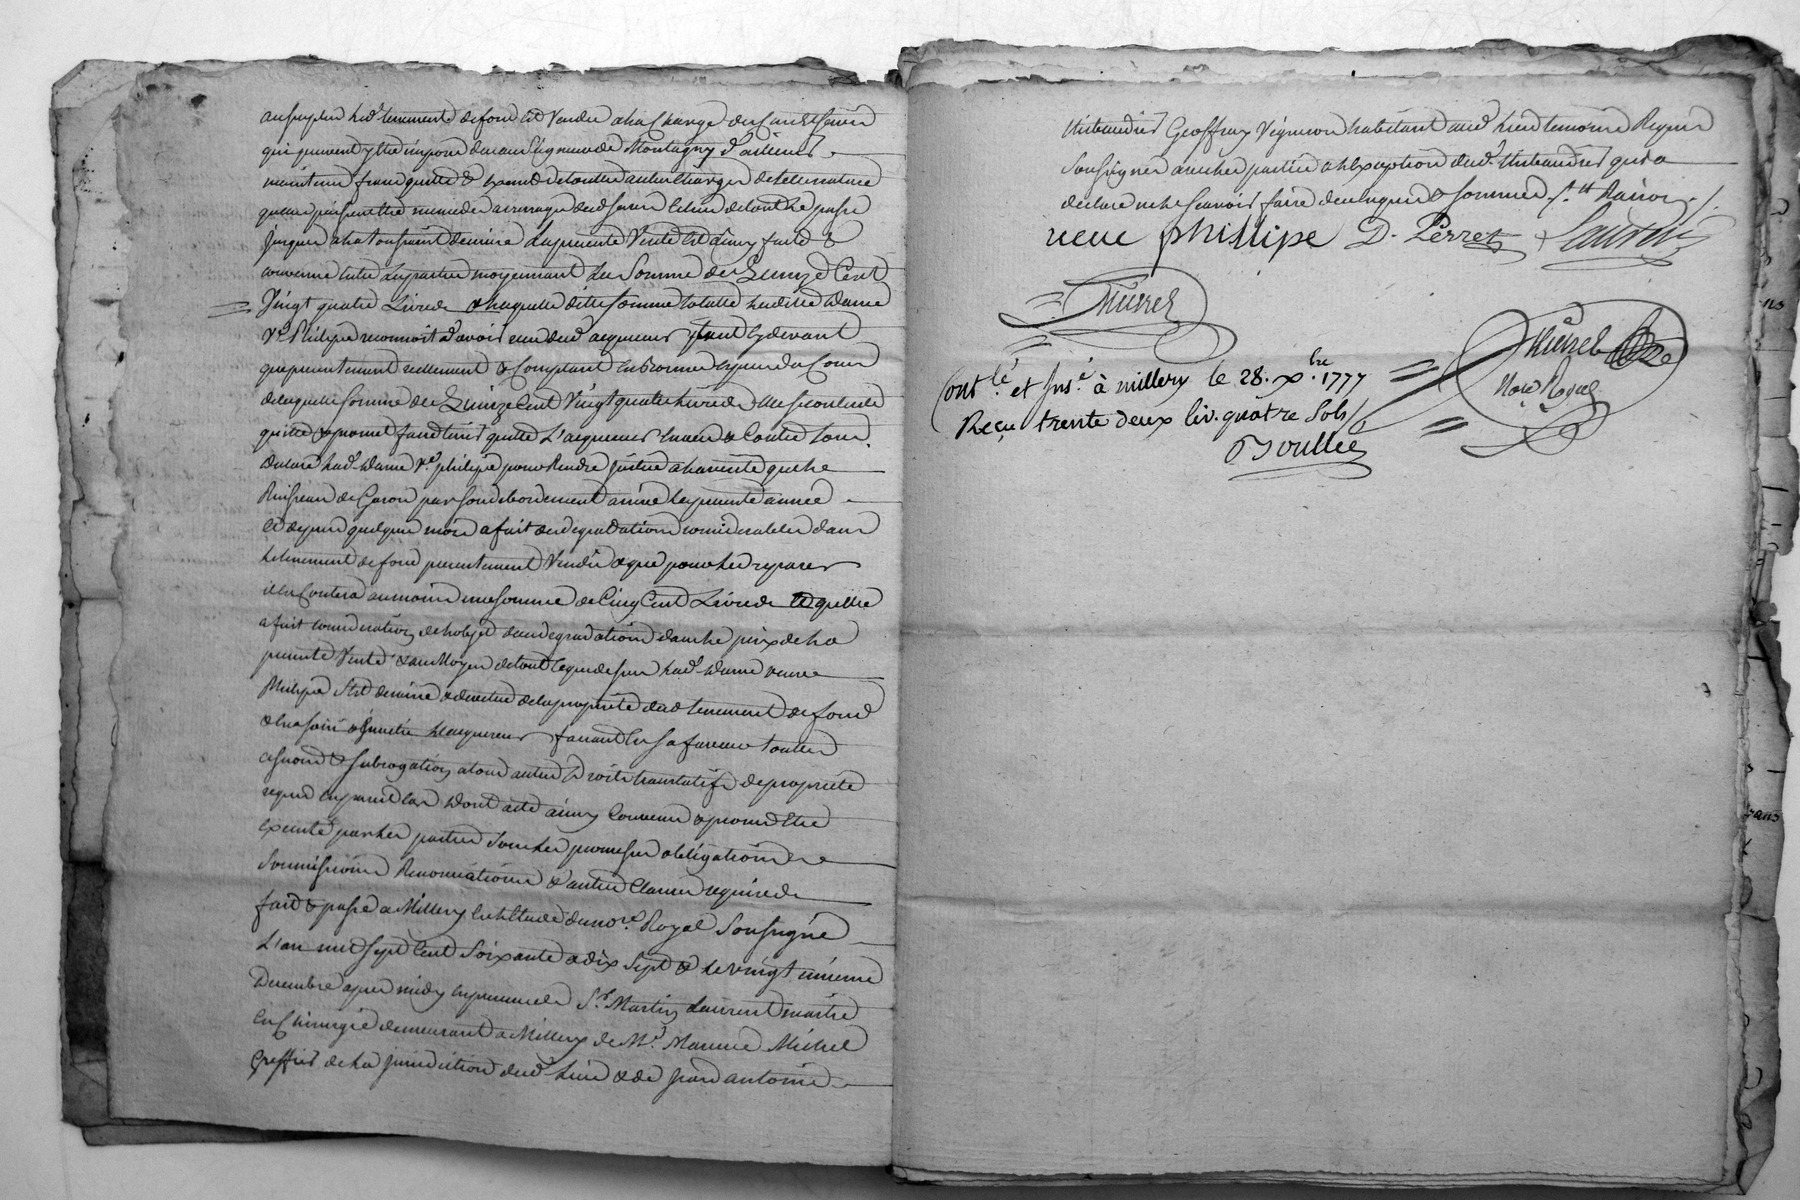 au surplus led. tenement de fond est vendu a la charge des cens et servis
qui peuvent y être imposés du au Seigneur de Montagny d'ailleurs
maintenu franc quitte & exempt de toutte autre charge de telle nature
que ce puisse être memes des arrerages desd. servis échus de tout le passé
jusques a la toussaint derniere la presente vente est ainsy faitte &
convenue entre les parties moyennant la somme de Quinze Cent
Vingt quatre Livres & laquelle ditte somme totalle laditte Dame
Ve. Philipe reconnoit d'avoir reçu dud. acquereur tant cy devant
que presentement reellement & comptant en bonnes especes du Cours
de laquelle somme de Quinze Cent Vingt quatre Livres elle se contente
quitte & promet faire tenir quitte L'acquereur envers & Contre tous.
Declare lad. Dame Ve. philipe pour Rendre justice a la verité que le
Ruisseau de Garon par son debordement arrivé la presente année
et depuis quelques mois a fait des degradations considerables dans
le tenement de fond presentement Vendu & que pour les reparer
il en Coutera au moins une somme de Cinq Cent Livres
a fait consideration de l'objet desd. degradations dans le prix de la
presente Vente & au Moyen de tout ce que dessus lad. Dame veuve
Philipe s'est demise & devetue de la proprieté dud. tenement de fond
& en a saisi & investi l'acquereur faisant en sa faveur touttes
cessions & subrogations a tous autres Droits translatifs de proprieté
requis en pareil cas Dont acte ainsy Convenu & promis être
executé par les parties sous les promesses obligations
Soumissions Renonciations & autres Clauses requises
fait & passé a Millery en l'Etude du nore. Royal Soussigné
L'an mil sept Cent Soixante & dix Sept & le vingt unieme
Decembre apres midy en presence de Sr. Martin Laurent maitre
en Chirurgie demeurant a Millery de Me. Maurice Michel
Greffier de la jurisdiction dud. Lieu & de Jean Antoine
Geoffray Vigneron habitant aud. lieu temoins Requis
Soussignés avec les parties a l'exception dud. qui a
declaré ne le scavoir faire de ce enquis & sommé
veuve phillipe D. Perret Laurent
Thuret
Contlé. et Insé. à millery le 28. xbre. 1777
Reçu trente deux liv. quatre Sols
Boullée
Nore Royal